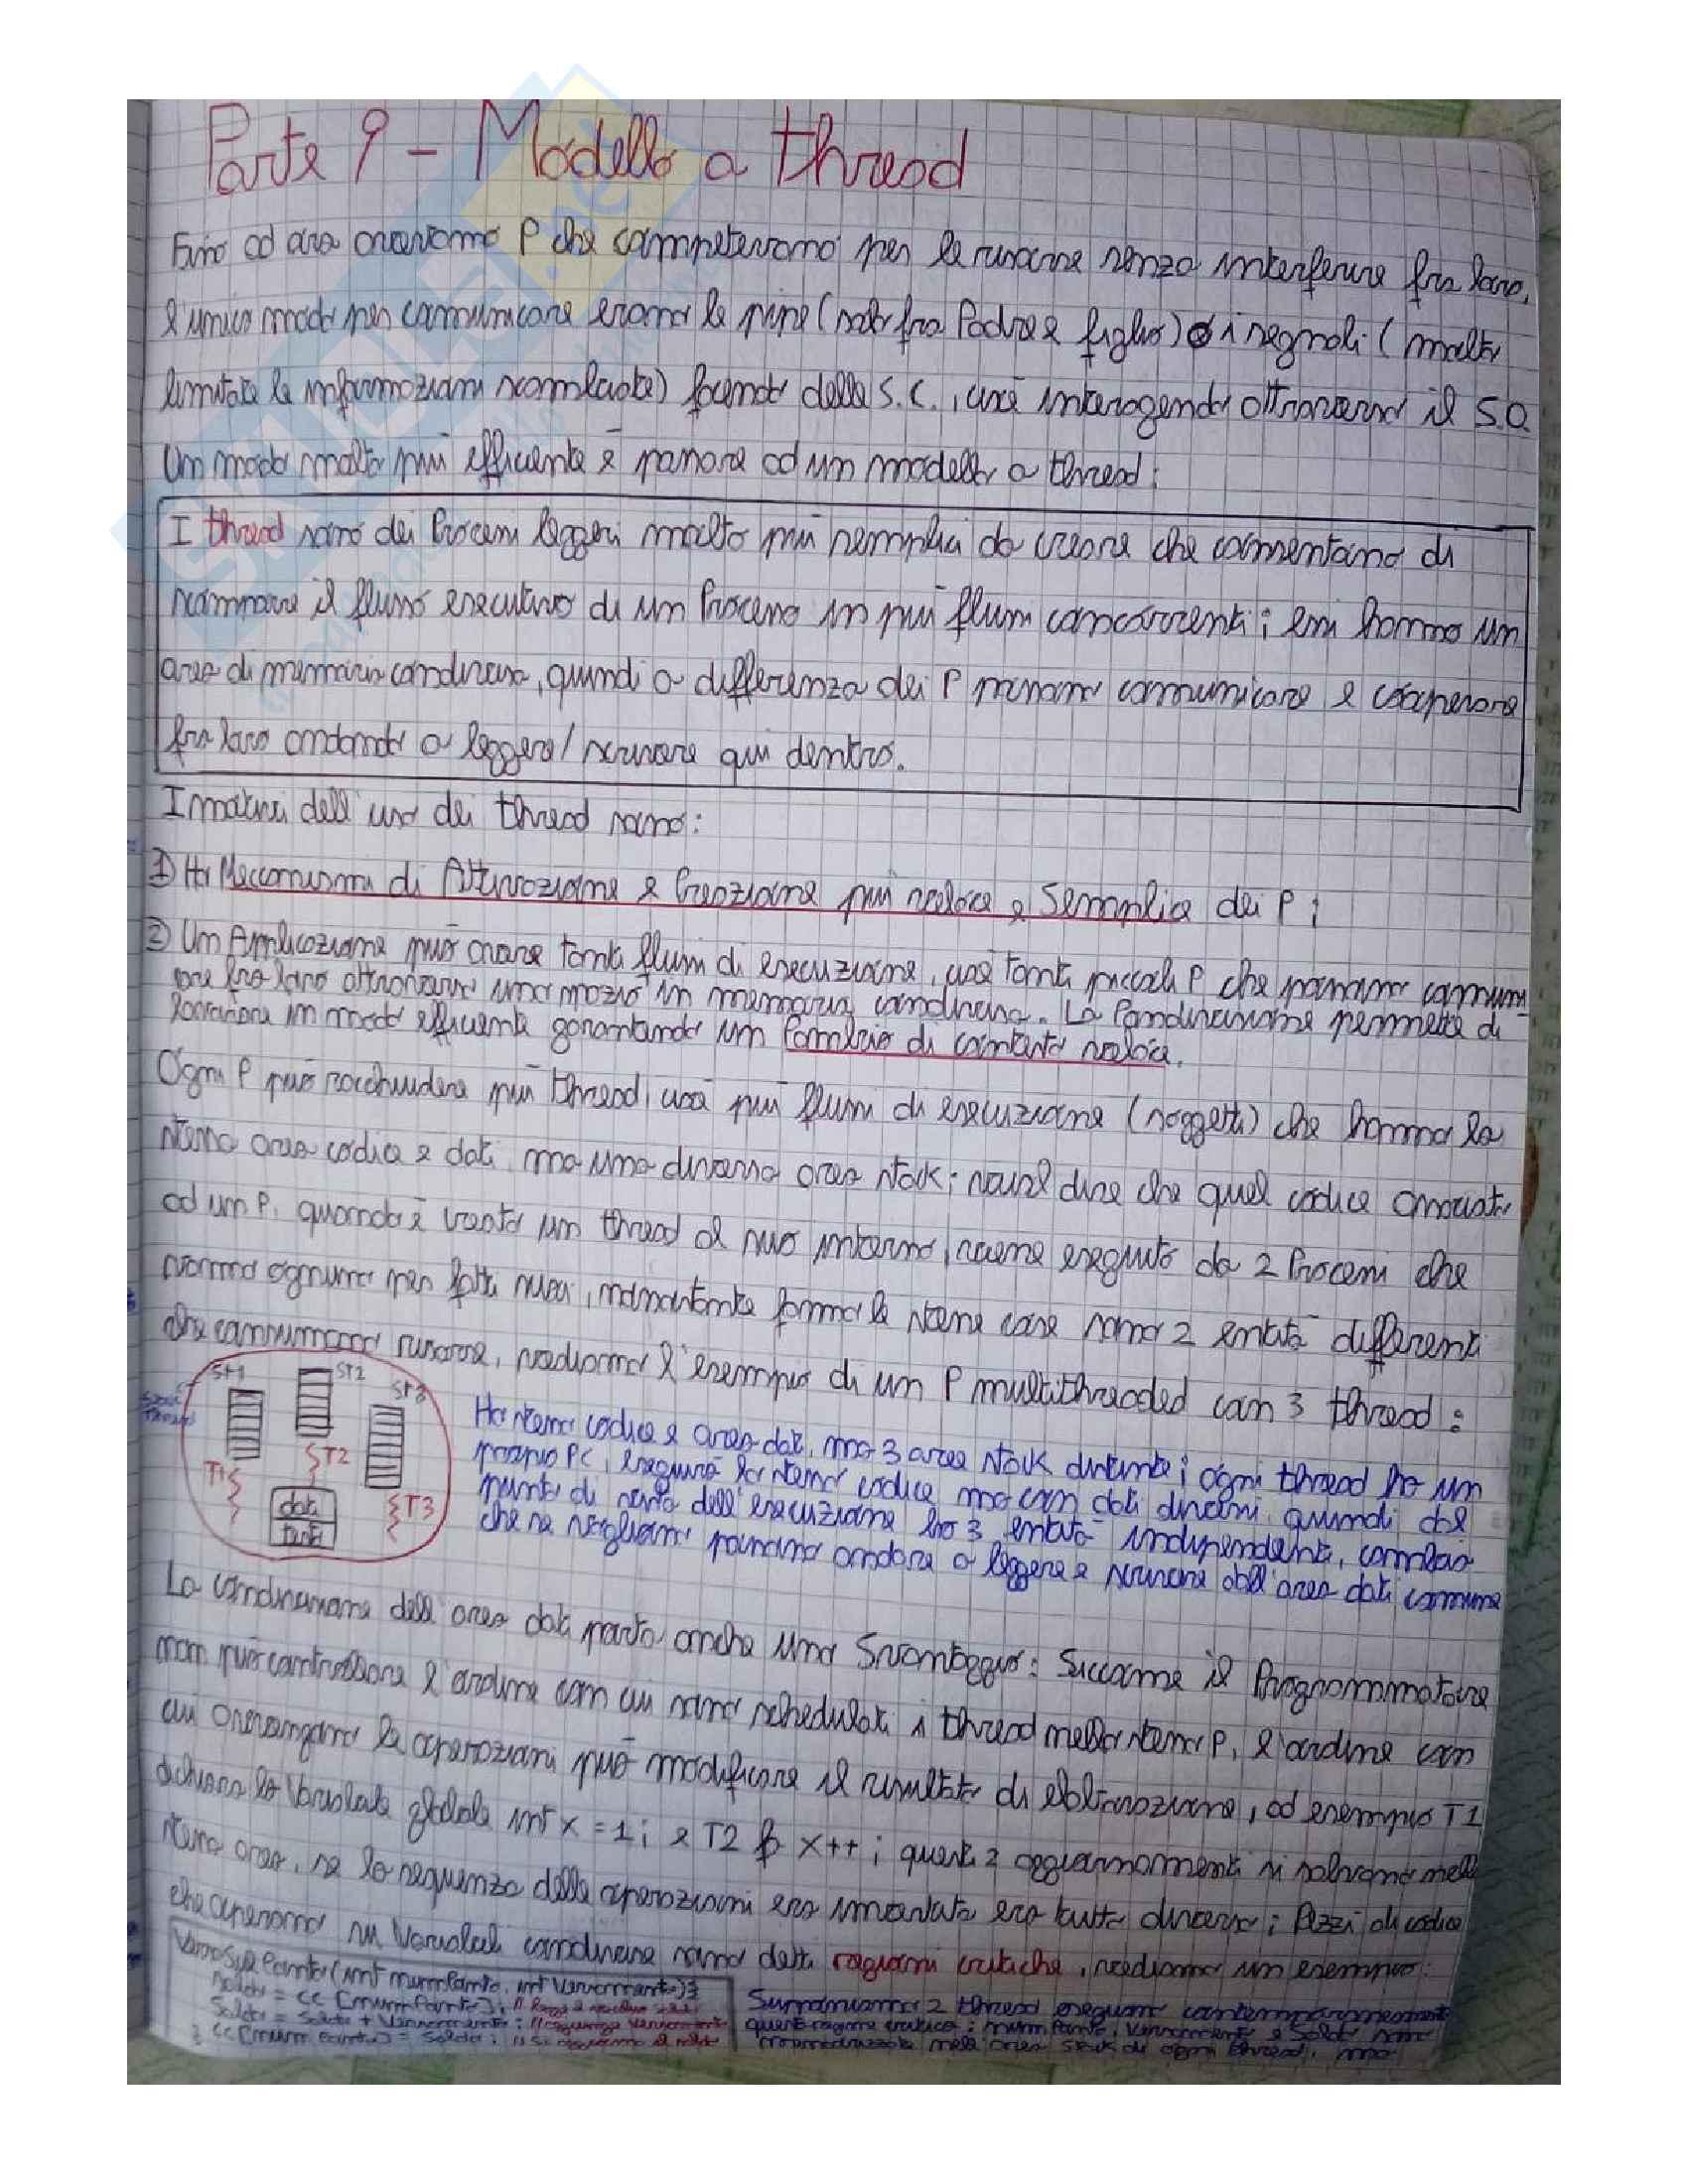 Parte 9 - Modello a thread
Fino ad ora avevamo P che competevano per le risorse senza interferire fra loro,
l'unico modo per comunicare erano le pipe (solo fra Padre e figlio) o i segnali (molto
limitate le informazioni scambiate) facendo delle S.C., cioè interagendo attraverso il S.O.
Un modo molto più efficiente è passare ad un modello a thread:
I thread sono dei Processi leggeri molto più semplici da creare che consentono di
scomporre il flusso esecutivo di un Processo in più flussi concorrenti; essi hanno un
area di memoria condivisa, quindi a differenza dei P possono comunicare e cooperare
fra loro andando a leggere/scrivere qui dentro.
I motivi dell'uso dei thread sono:
1) Ho Meccanismi di Attivazione e Creazione più veloce e Semplice dei P;
2) Un Applicazione può creare tanti flussi di esecuzione, cioè tanti piccoli P che possono comuni-
care fra loro attraverso uno spazio in memoria condiviso. La Condivisione permette di
lavorare in modo efficiente garantendo un Cambio di contesto veloce.
Ogni P può racchiudere più thread, cioè più flussi di esecuzione (soggetti) che hanno la
stessa area codice e dati, ma una diversa area stack; vuol dire che quel codice associato
ad un P, quando è creato un thread al suo interno, viene eseguito da 2 Processi che
vanno ognuno per fatti suoi, nonostante fanno le stesse cose sono 2 entità differenti
che consumano risorse, vediamo l'esempio di un P multithreaded con 3 thread:
St1
St2
St3
Stack
thread
T1
T2
T3
dati
testo
Ho stesso codice e area dati, ma 3 aree stack distinte; ogni thread ha un
proprio PC, eseguirà lo stesso codice ma con dati diversi, quindi dal
punto di vista dell'esecuzione ho 3 entità indipendenti,
che se vogliamo possono andare a leggere e scrivere dall'area dati comune
La condivisione dell'area dati porta anche uno Svantaggio: Siccome il Programmatore
non può controllare l'ordine con cui sono schedulati i thread nello stesso P, l'ordine con
cui avvengono le operazioni può modificare il risultato di elaborazione, ad esempio T1
dichiara la Variabile globale int x = 1; e T2 fa x++; questi 2 aggiornamenti si salvano nella
stessa area, se la sequenza delle operazioni era invertita era tutto diverso; Pezzi di codice
che operano su Variabili condivise sono detti regioni critiche, vediamo un esempio:
VersaSulConto(int numConto, int Versamento){
Saldo = CC[numConto]; //leggo il vecchio saldo
Saldo = Saldo + Versamento; //aggiungo versamento
} CC[numConto] = Saldo; //Si aggiorna il saldo
Supponiamo 2 thread eseguono contemporaneamente
questa regione critica: numConto, Versamento e Saldo sono
memorizzate nell'area stack di ogni thread, ma